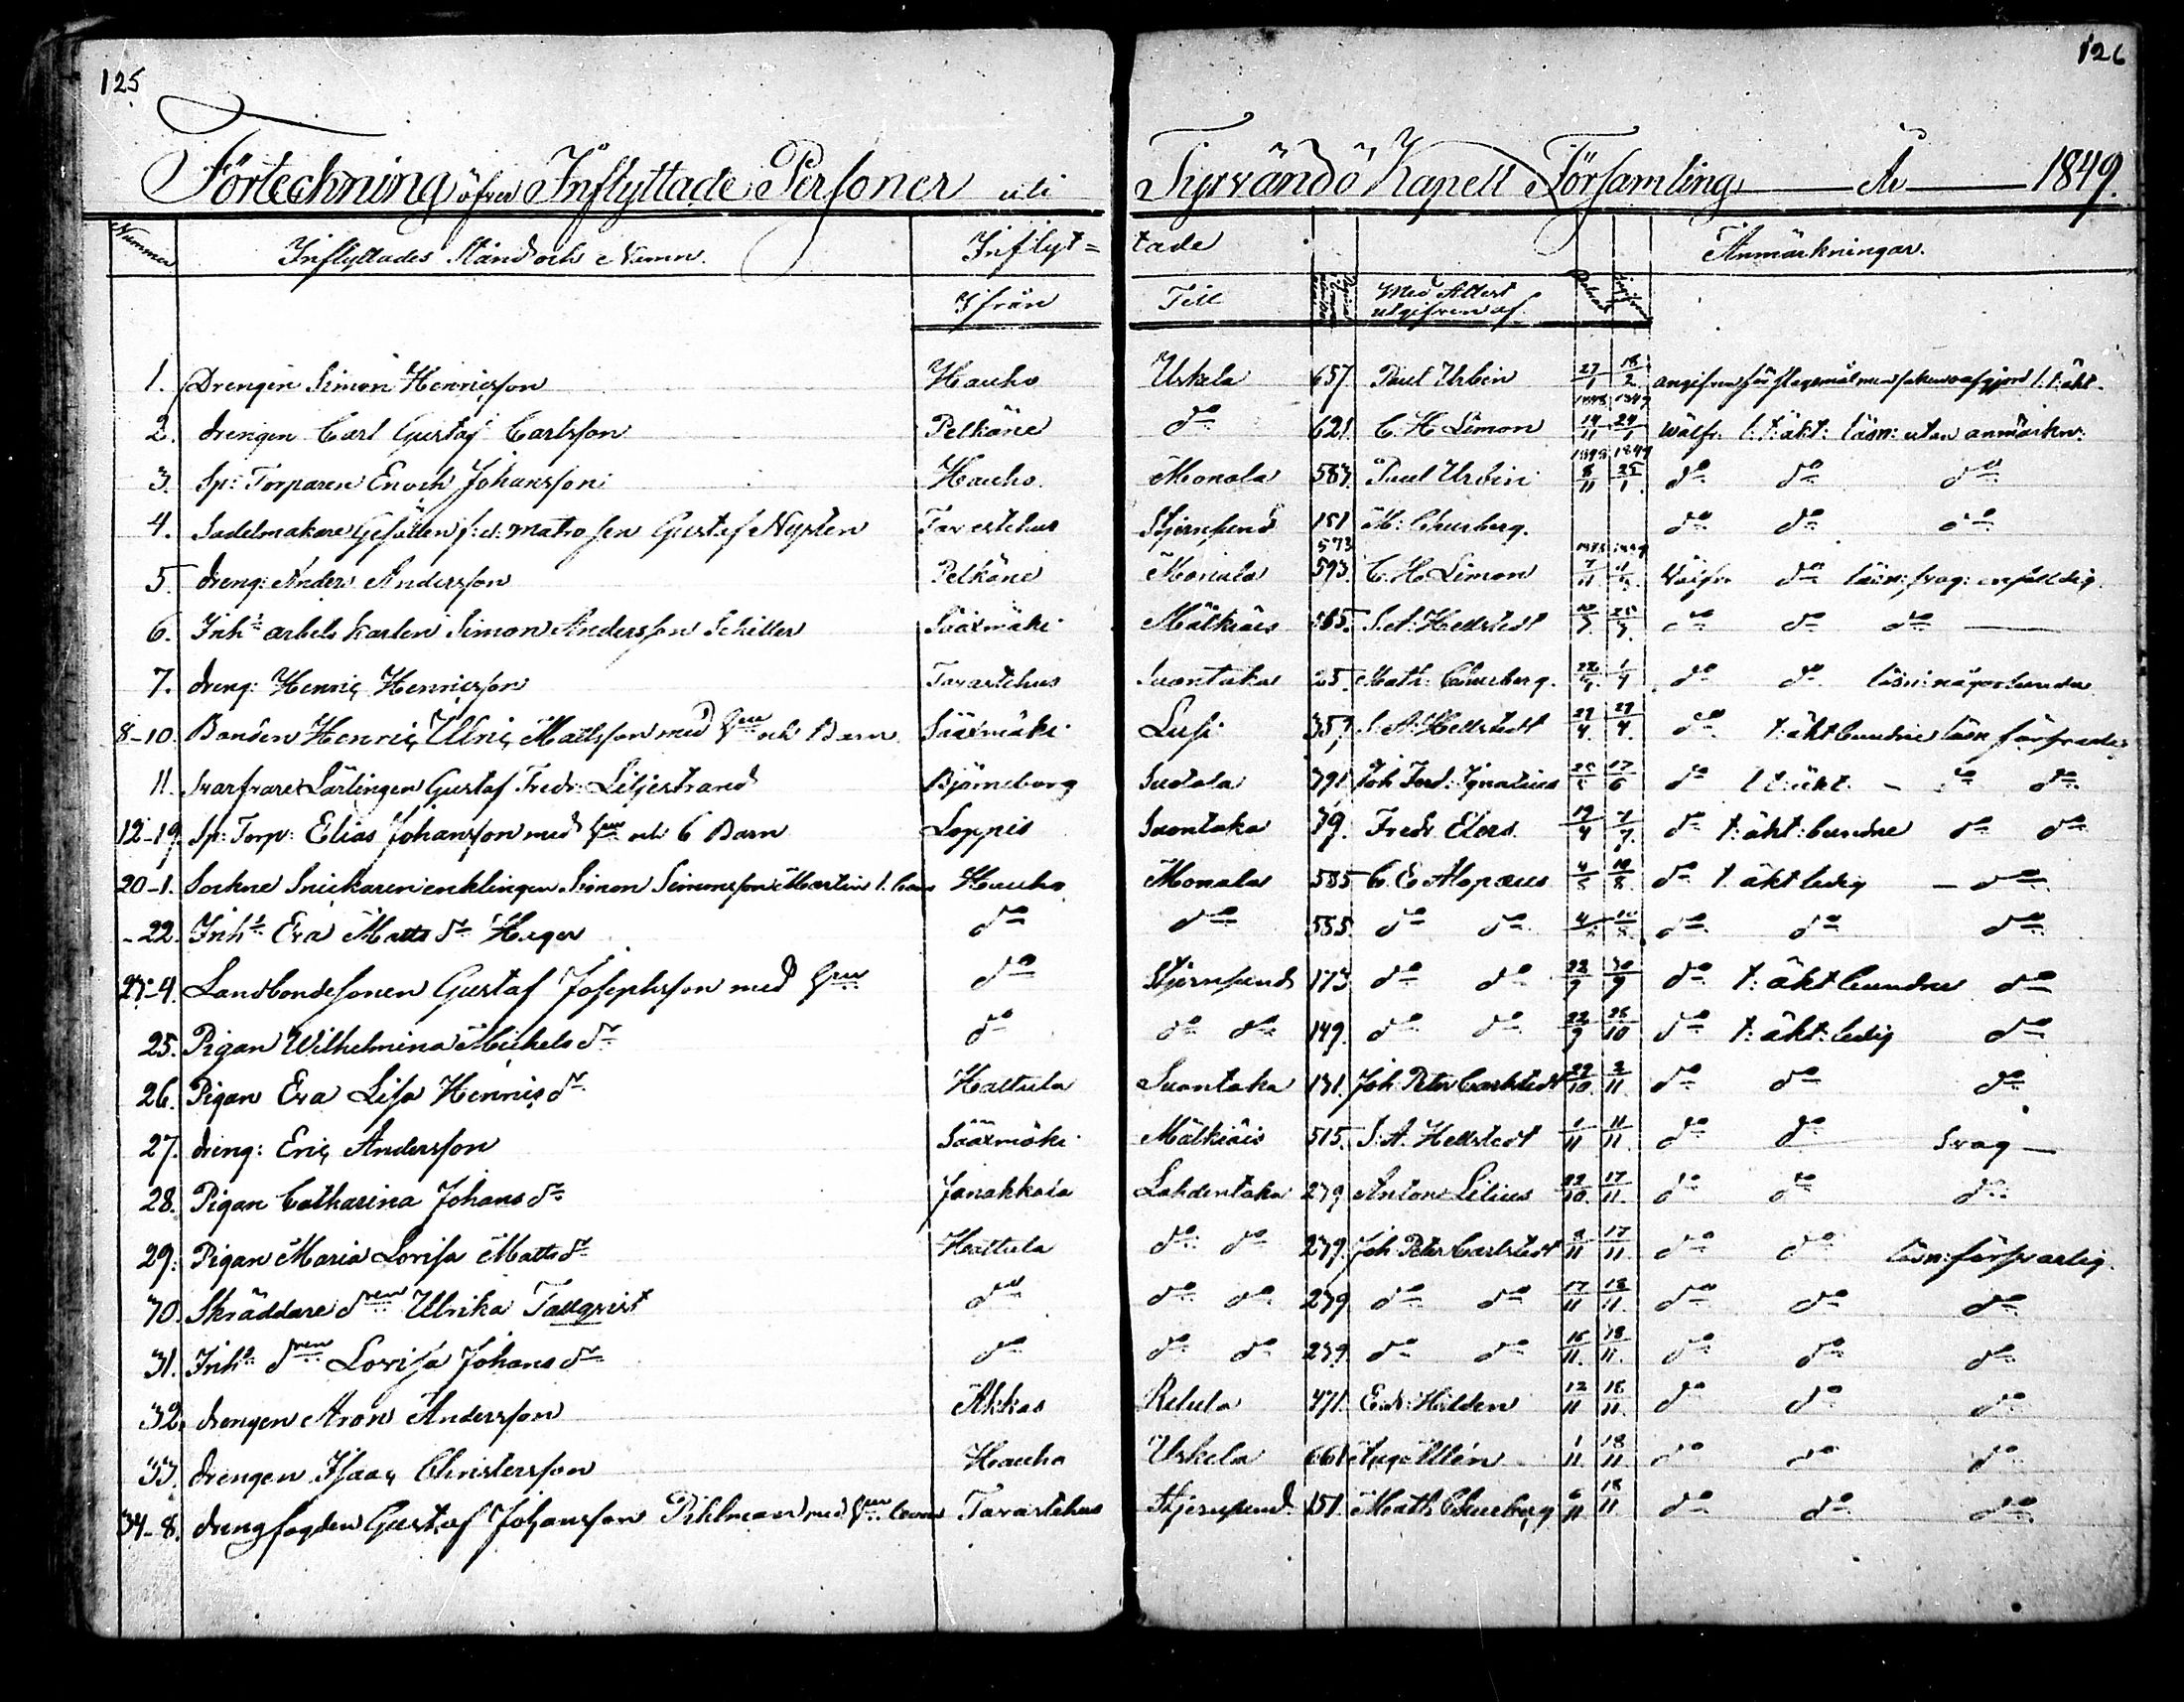 125
126
Förteckning öfver Inflyttade Personer uti Tyrvändö Kapell Församling År 1849.
Nummer Inflyttades Stånd och Namn. Inflyt= tade Anmärkningar.
Ifrån Till Med Attest utgifven af
1. Drengen Simon Henricsson Hauho Uskela 657 Paul Urbin 27/1 18/2
2. drengen Carl Gustaf Carlsson Pelkäne do 621. C. H. Limon 1848 19/11 1849 24/1 Wälfr. t: t: äkt: läsn: utan anmärkn:
3. Sp: Torparen Enoch Johansson Hauho Monala 583. Paul Urbin 1848 8/11 1849 25/1 do do do
4. Sadelmakare Gesällen f: d: Matrosen Gustaf Nysten Tavastehus Stjernsund 151 M: Churberg. do do do
5. dreng: Anders Andersson Pelkäne Monala 573 593. C. H. Limon Wälfr. do läsn: svag: enfaldig.
6. Inhs arbets karlen Simon Andersson Schiller Sääxmäki Mälkiäis S. A. Hellstedt do do do
7. dreng: Henric Henricsson Tavastehus Suontaka 25. Math: Churberg. do do läsn: någorlunda
8-10. Bonden Henric Ulric Mattsson med hu och Barn Sääxmäki Lusi 357 S. A. Hellstedt 27/4 29/4 do t: äkt bunden läsn försvarlig
11. Svarfvare Lärlingen Gustaf Fredr: Liljestrand Björneborg Suotala 391 Joh Ferd: Ignatius 17/6 do l t: äkt. do do
12-19. Sp: Torp: Elias Johansson med hu och 6 Barn Loppis Suontaka 39. Fredr Elers. 19/4 7/7 do t: äkt: bundne do do
20-1. Sockne Snickaren enklingen Simon Simonsson Martin 1. barn Hauho Monala 585 C. E. Alopæus 4/8 18/8 do t. äkt ledig do
22. Inhs Eva Matts dr Heger do do 555. do do do do do
23-4. Landbondesonen Gustaf Josephsson med hu do Stjernsund 173 do do 22/9 30/9 do t: äkt bunden do
25. Pigan Wilhelmina Michels dr do do do 149. do do 22/9 28/10 do t: äkt: ledig do
26. Pigan Eva Lisa Henrics dr Hattula Suontaka 131. Joh: Peter Carlstedt 29/10 2/11 do do do
27. dreng: Eric Andersson Sääxmäki Mälkiäis 515. S. A. Hellstedt 1/11 11/11 do do svag
28. Pigan Catharina Johans dr Janakkala Lahdentaka 279 Anton Lilius 22/10. 17/11. do do do
29. Pigan Maria Lovisa Matts dr Hattula do do 279. Joh: Peter Carlstedt 3/11 17/11. do do läsn: försvarlig.
30. Skräddare dren Ulrika Tallqvist do do do 279. do do 17/11 18/11. do do do
31. Inhs dren Lovisa Johans dr do do do 279. do do 16/11. 18/11. do do do
32. drengen Aron Andersson Akkas Retula 471. Edv: Hildén 12/11 18/11. do do do
33. drengen Isaac Christersson Hauho Uskela 661 Aug: Ullén 1/11. 18/11 do do do
34-8. drengfogden Gustaf Johansson Pihlman med hu barn Tavastehus Stjernsund. 151. Math: Churberg 6/11 18/11. do do do